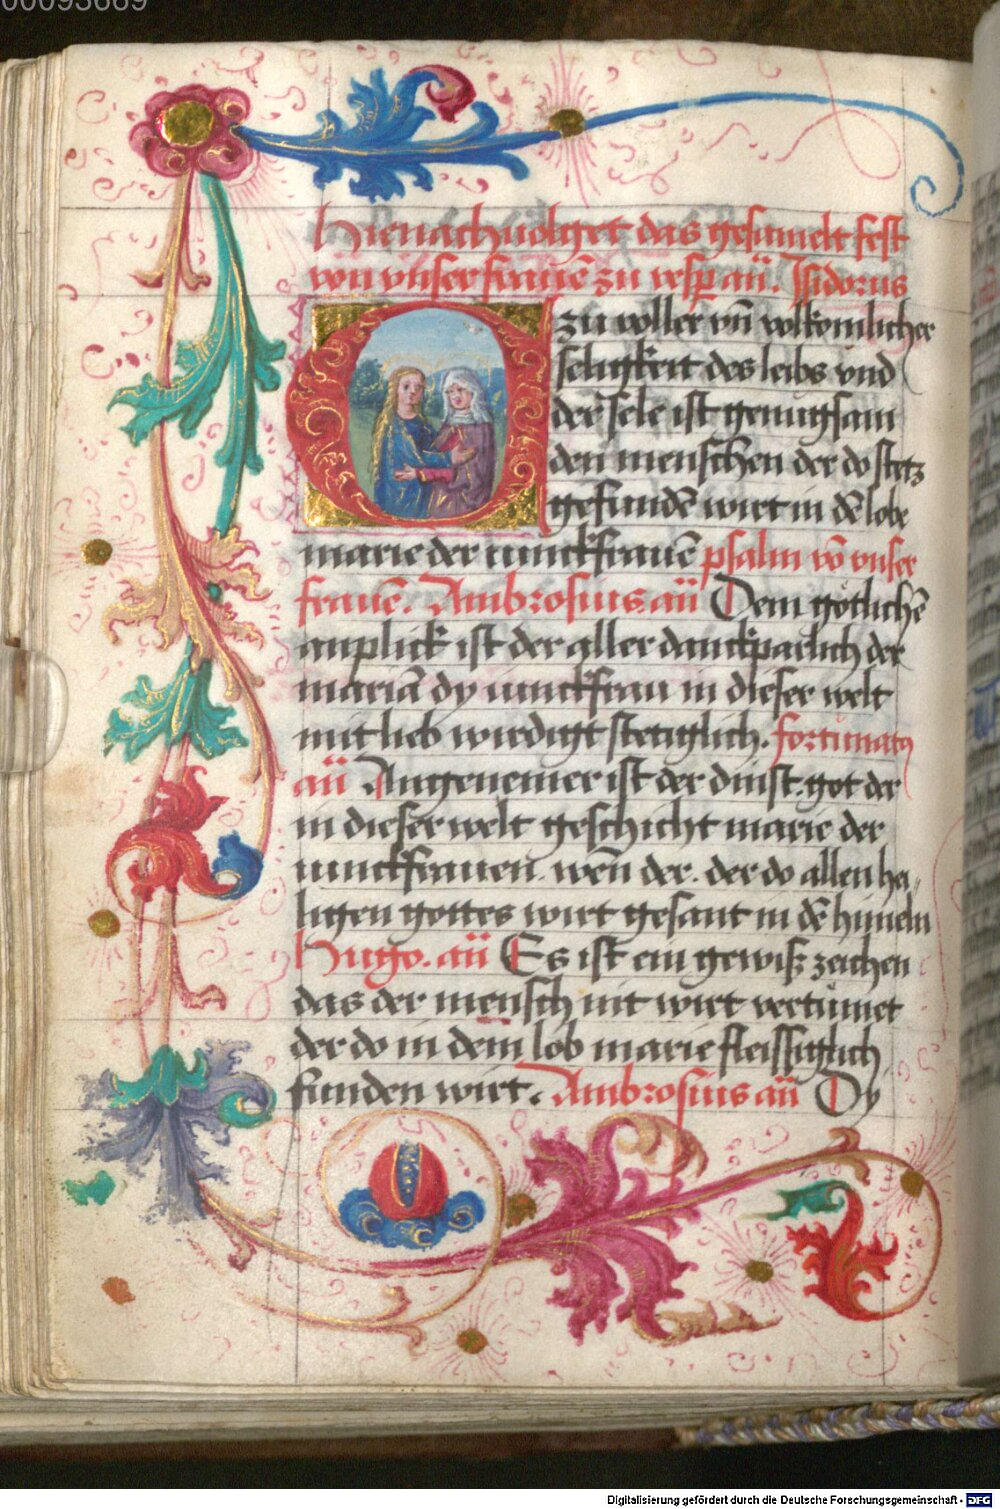 00093669
Hienach volget das gesamelt fest
von vnser frauē zu vesꝑ aū. Isidorus
O zu voller vn̄ volkomlicher
seligkeit des leibs vnd
der sele ist genugsam
den menschen der do stetz
gefundē wirt in dē lobe
marie der iunckfrauē psalm vō vnser
frauē. Ambrosius aū Dem gotlichē
anplick ist der aller danckparlich der
mariā dy iunckfrau in dieser welt
mit lieb wirdigt stetiglich. fortunatꝰ
aū Angenemer ist der dinst. got der
in dieser welt geschicht marie der
iunckfrauen. wēn der. der do allen hei
ligen gottes wirt gesant in dē himeln
Hugo. aū Es ist ein gewiß zeichen
das der mensch nit wirt vertūmet
der do in dem lob marie fleissiglich
funden wirt. Ambrosius aū Dy
Digitalisierung gefördert durch die Deutsche Forschungsgemeinschaft - DFG